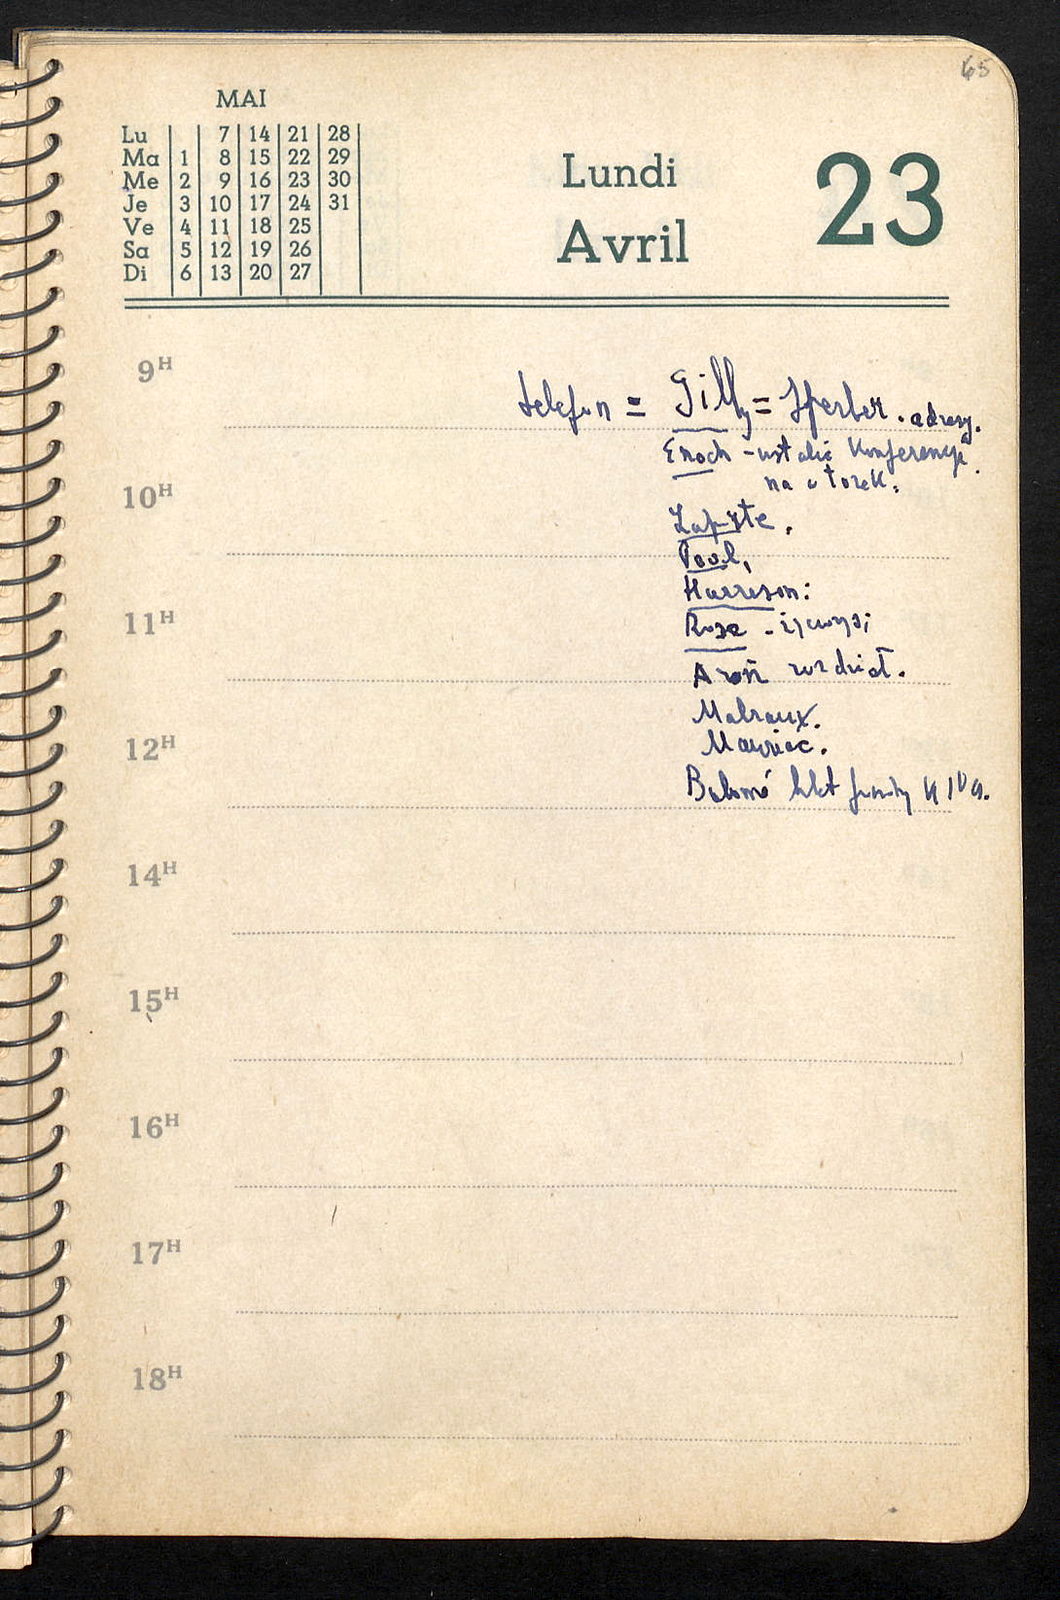 65
MAI
Lu 7 14 21 28
Ma 1 8 15 22 29
Me 2 9 16 23 30
Je 3 10 17 24 31
Ve 4 11 18 25
Sa 5 12 19 26
Di 6 13 20 27
Lundi
Avril
23
9H
telefon = Gilly = Sperber. adresy.
Enoch - ustalić Konferencję
na wtorek.
10H
Paul,
Harrison:
11H
Rose -
Aron rozdział.
Malraux.
12H
Mauriac.
14H
15H
16H
17H
18H